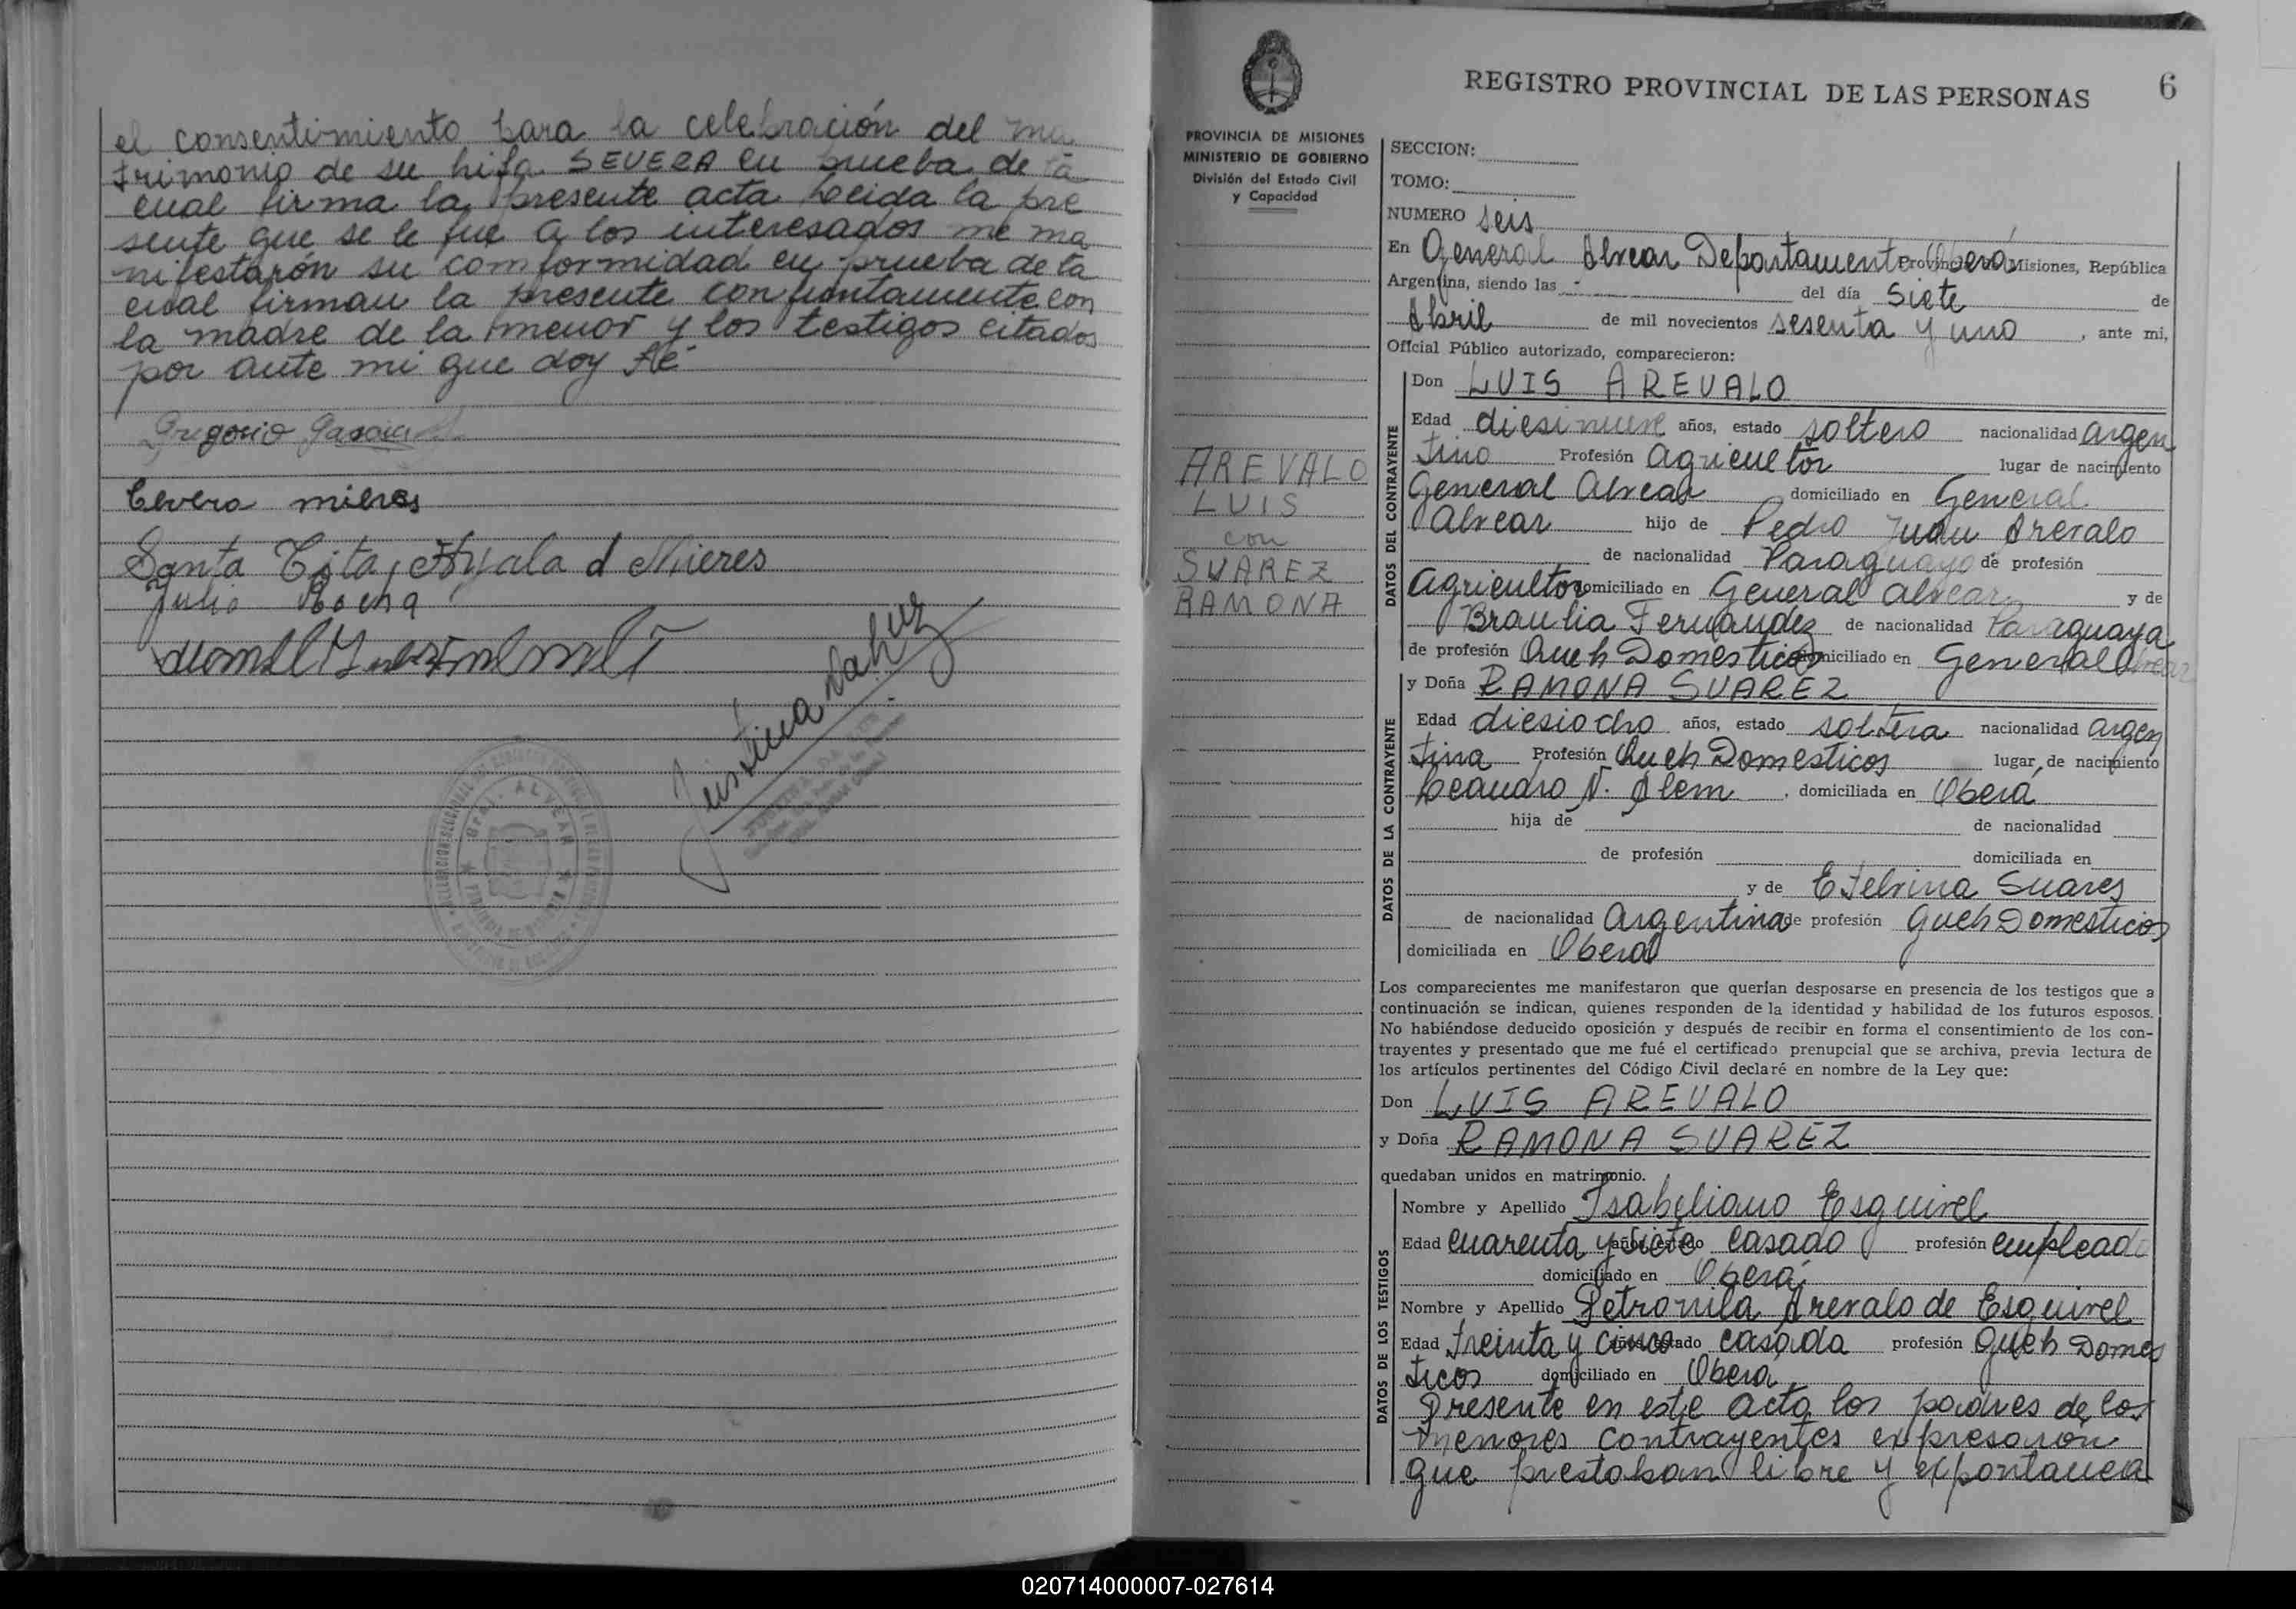 el consentimiento para la celebración del ma
trimonio de su hija SEVERA en prueba de la
cual firma la presente acta Leida la pre
sente que se le fue a los interesados me ma
nifestarón su comformidad en prueba de la
cual firman la presente conjuntamente con
la madre de la menor y los testigos citados
por ante mi que doy Fé
Gregorio
Cevera mieres
Santa Tita Ayala d Mieres
Julio
Justina
GRAL. ALVEAR
REGISTRO PROVINCIAL DE LAS PERSONAS 6
PROVINCIA DE MISIONES
MINISTERIO DE GOBIERNO
División del Estado Civil
y Capacidad
AREVALO
LUIS
con
SUAREZ
RAMONA
SECCION:
TOMO:
NUMERO seis
En General Alvear Departamento Oberá Misiones, República
Argentina, siendo las - del día Siete de
Abril de mil novecientos sesenta y uno, ante mi,
Oficial Público autorizado, comparecieron:
DATOS DEL CONTRAYENTE
Don LUIS AREVALO
Edad diesinueve años, estado soltero nacionalidad argen
tino Profesión agricultor lugar de nacimiento
General Alvear domiciliado en General
Alvear hijo de Pedro Juan Arevalo
de nacionalidad Paraguayo de profesión
agricultor domiciliado en General Alvear y de
Braulia Fernandez de nacionalidad Paraguaya
de profesión Queh Domesticos domiciliado en General Alvear
DATOS DE LA CONTRAYENTE
y Doña RAMONA SUAREZ
Edad diesiocho años, estado soltera nacionalidad argen
tina Profesión Queh Domesticos lugar de nacimiento
Leandro N. Alem, domiciliada en Oberá
hija de de nacionalidad
de profesión domiciliada en
y de Etelvina Suares
de nacionalidad Argentina de profesión Queh Domesticos
domiciliada en Oberá
Los comparecientes me manifestaron que querían desposarse en presencia de los testigos que a
continuación se indican, quienes responden de la identidad y habilidad de los futuros esposos.
No habiéndose deducido oposición y después de recibir en forma el consentimiento de los con-
trayentes y presentado que me fué el certificado prenupcial que se archiva, previa lectura de
los artículos pertinentes del Código Civil declaré en nombre de la Ley que:
Don LUIS AREVALO
y Doña RAMONA SUAREZ
quedaban unidos en matrimonio.
DATOS DE LOS TESTIGOS
Nombre y Apellido Isabeliano Esquivel
Edad cuarenta y siete años, estado casado profesión empleado
domiciliado en Oberá
Nombre y Apellido Petronila Arevalo de Esquivel
Edad treinta y cinco años, estado casada profesión Queh Domes
ticos domiciliado en Oberá
Presente en este acto los padres de los
menores contrayentes expresaron
que prestaban libre y expontanea
020714000007-027614